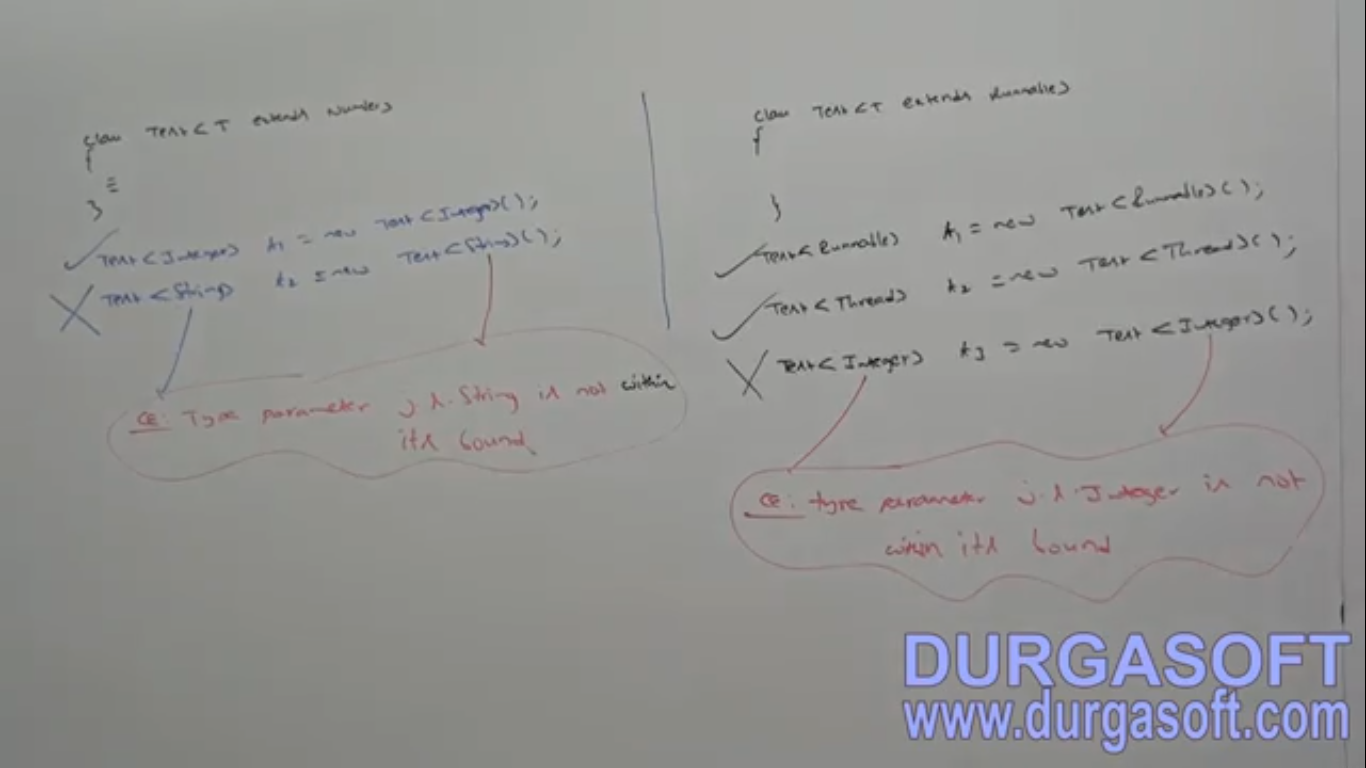 class Test<T extends Number>
{
}
Test<Integer> t1 = new Test<Integer>();
Test<String> t2 = new Test<String>();
CE: Type parameter j.l.String is not within
its bound
class Test<T extends Runnable>
{
}
Test<Runnable> t1 = new Test<Runnable>();
Test<Thread> t2 = new Test<Thread>();
Test<Integer> t3 = new Test<Integer>();
CE: type parameter j.l.Integer is not
within its bound
DURGASOFT
www.durgasoft.com